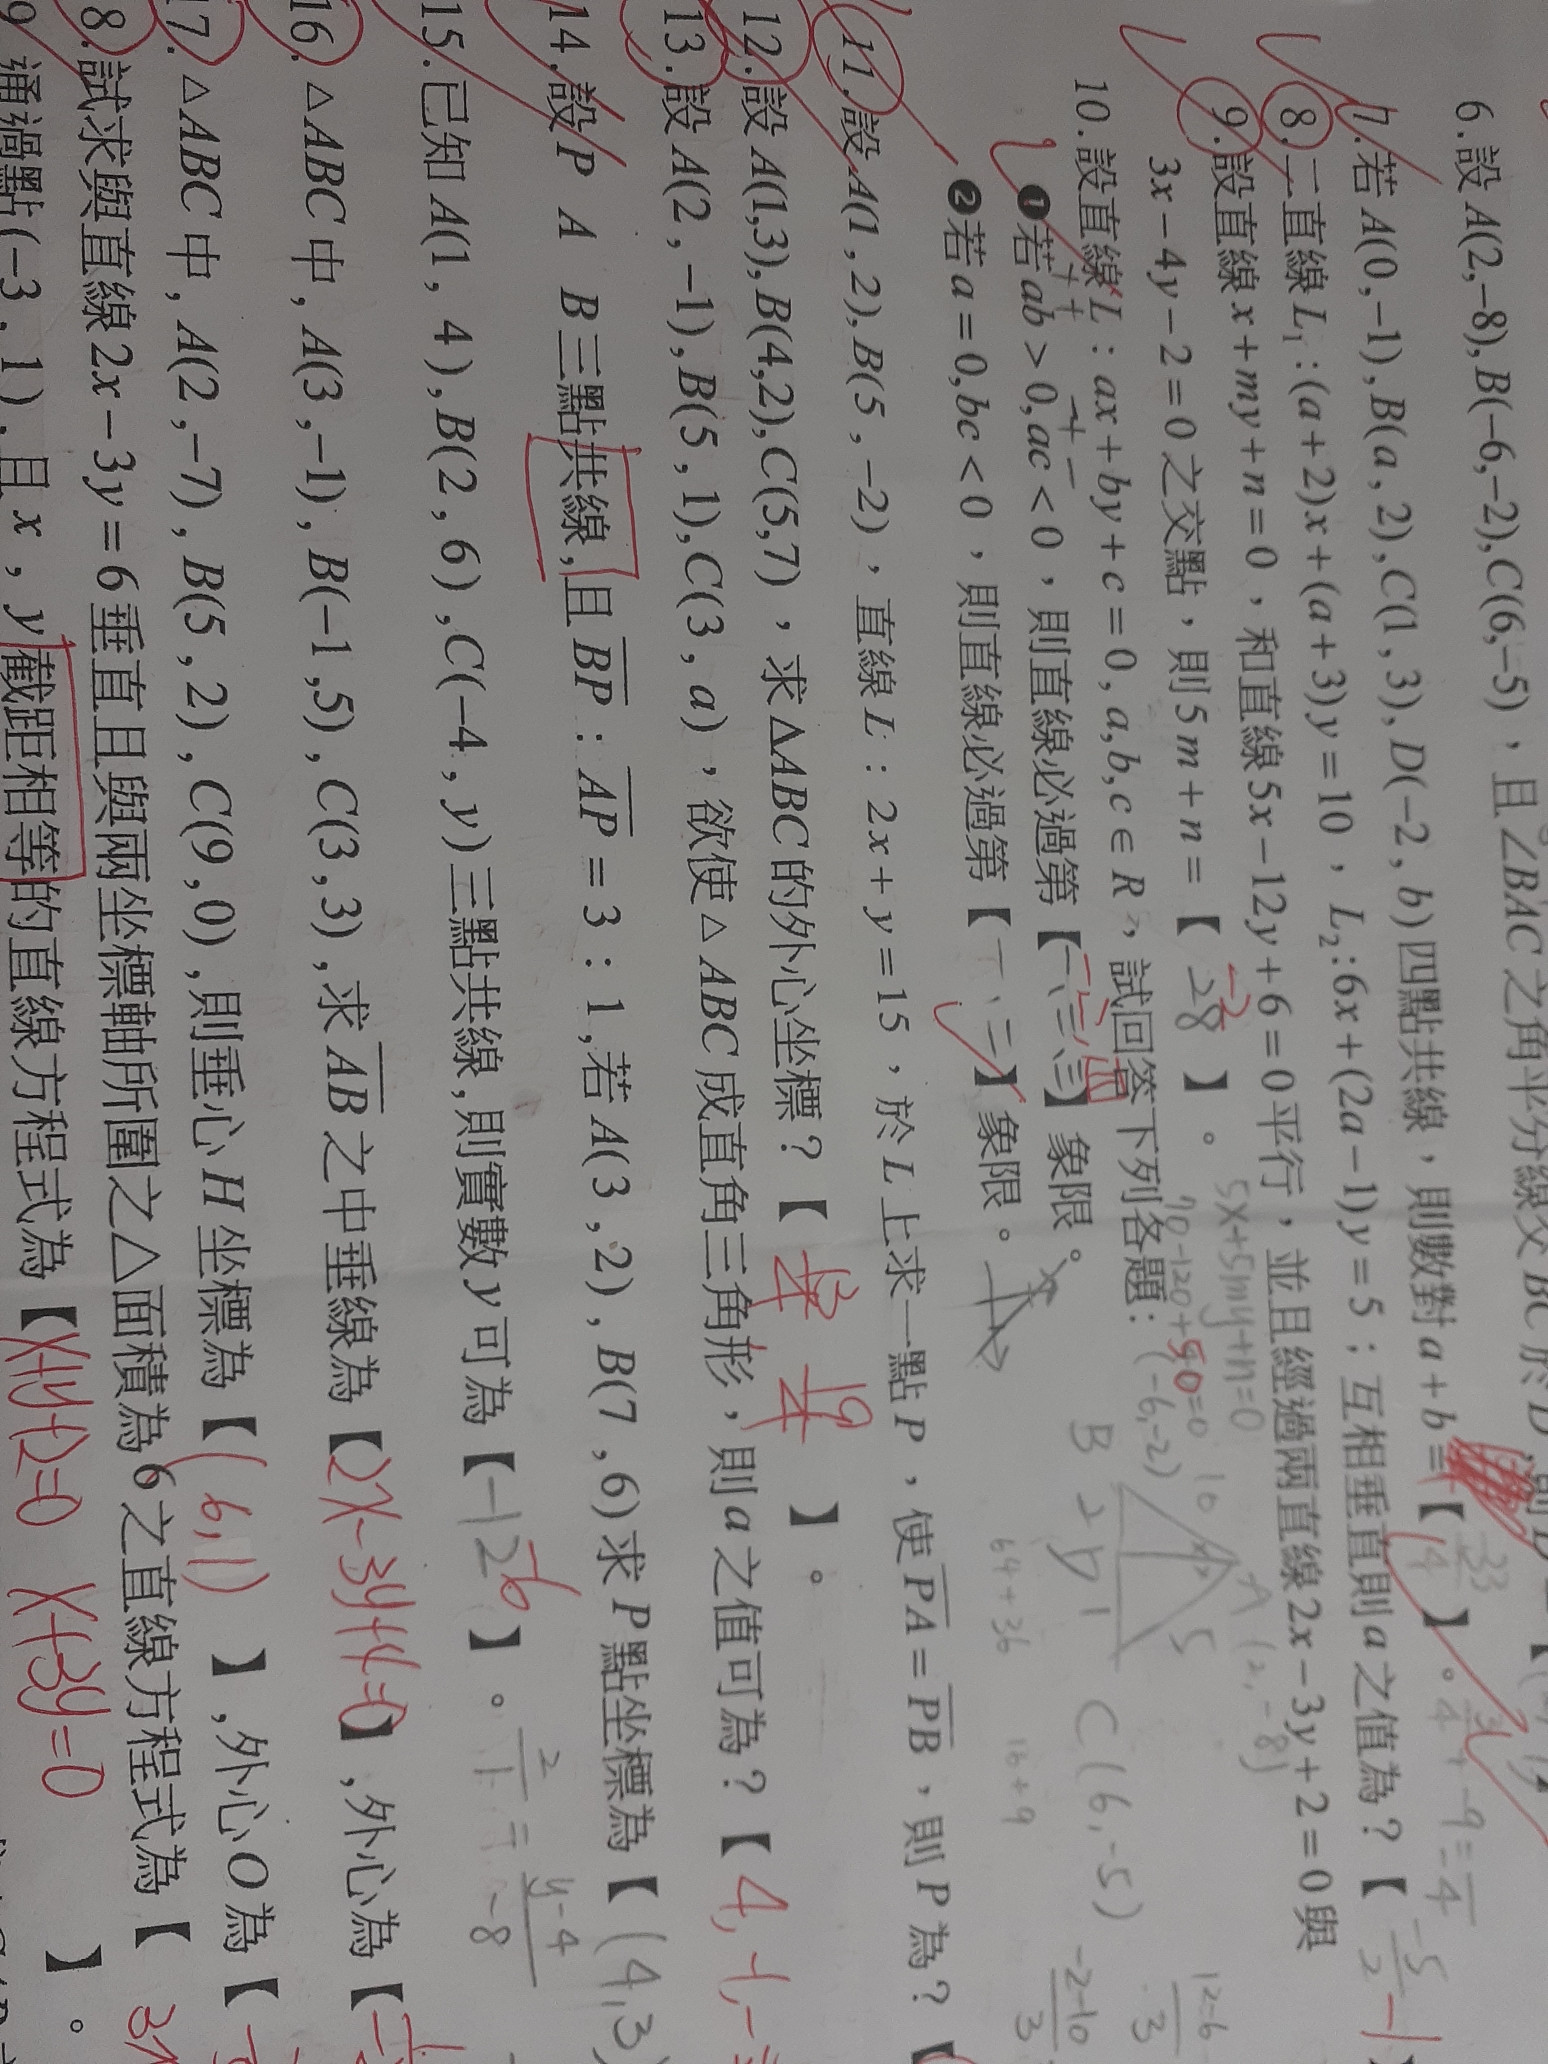 6.設A(2,−8),B(−6,−2),C(6,−5)，且∠BAC之角平分線交BC於D,則D
7.若A(0,−1),B(a,2),C(1,3),D(−2,b)四點共線，則數對a+b=【 】。
8.二直線L₁:(a+2)x+(a+3)y=10，L₂:6x+(2a−1)y=5；互相垂直則a之值為？【 −5/2 −1
9.設直線x+my+n=0，和直線5x−12y+6=0平行，並且經過兩直線2x−3y+2=0與
3x−4y−2=0之交點，則5m+n=【 −28 】。
5x+5my+n=0
10.設直線L：ax+by+c=0,a,b,c∈R，試回答下列各題：
❶若ab>0,ac<0，則直線必過第【一、二、四】象限。
❷若a=0,bc<0，則直線必過第【一、二】象限。
(−6,−2)
B
10
A(2,−8)
5
2
1
C(6,−5)
64+36
16+9
−2−10/3
12−6/3
11.設A(1,2),B(5,−2)，直線L：2x+y=15，於L上求一點P，使PA=PB，則P為？【
12.設A(1,3),B(4,2),C(5,7)，求△ABC的外心坐標？【 】。
13.設A(2,−1),B(5,1),C(3,a)，欲使△ABC成直角三角形，則a之值可為？【4,
14.設P A B三點共線,且BP：AP=3：1,若A(3,2),B(7,6)求P點坐標為【(4,3)
15.已知A(1,4),B(2,6),C(−4,y)三點共線,則實數y可為【 −6 】。
2/1 = y−4/−8
16.△ABC中,A(3,−1),B(−1,5),C(3,3),求AB之中垂線為【2x−3y+4=0】,外心為【
17.△ABC中,A(2,−7),B(5,2),C(9,0),則垂心H坐標為【(6,1) 】,外心O為【
8.試求與直線2x−3y=6垂直且與兩坐標軸所圍之△面積為6之直線方程式為【 3x
9.通過點(−3,1),且x，y截距相等的直線方程式為【x+y+2=0 x+3y=0 】。